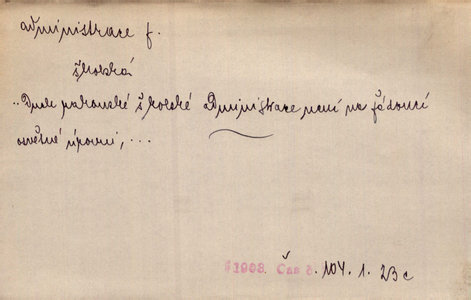 administrace f.
školská
„Duch rakouské školské administrace není na žádoucí
osvětné úrovni, ...
1908. Čas č. 104. 1. 23 c